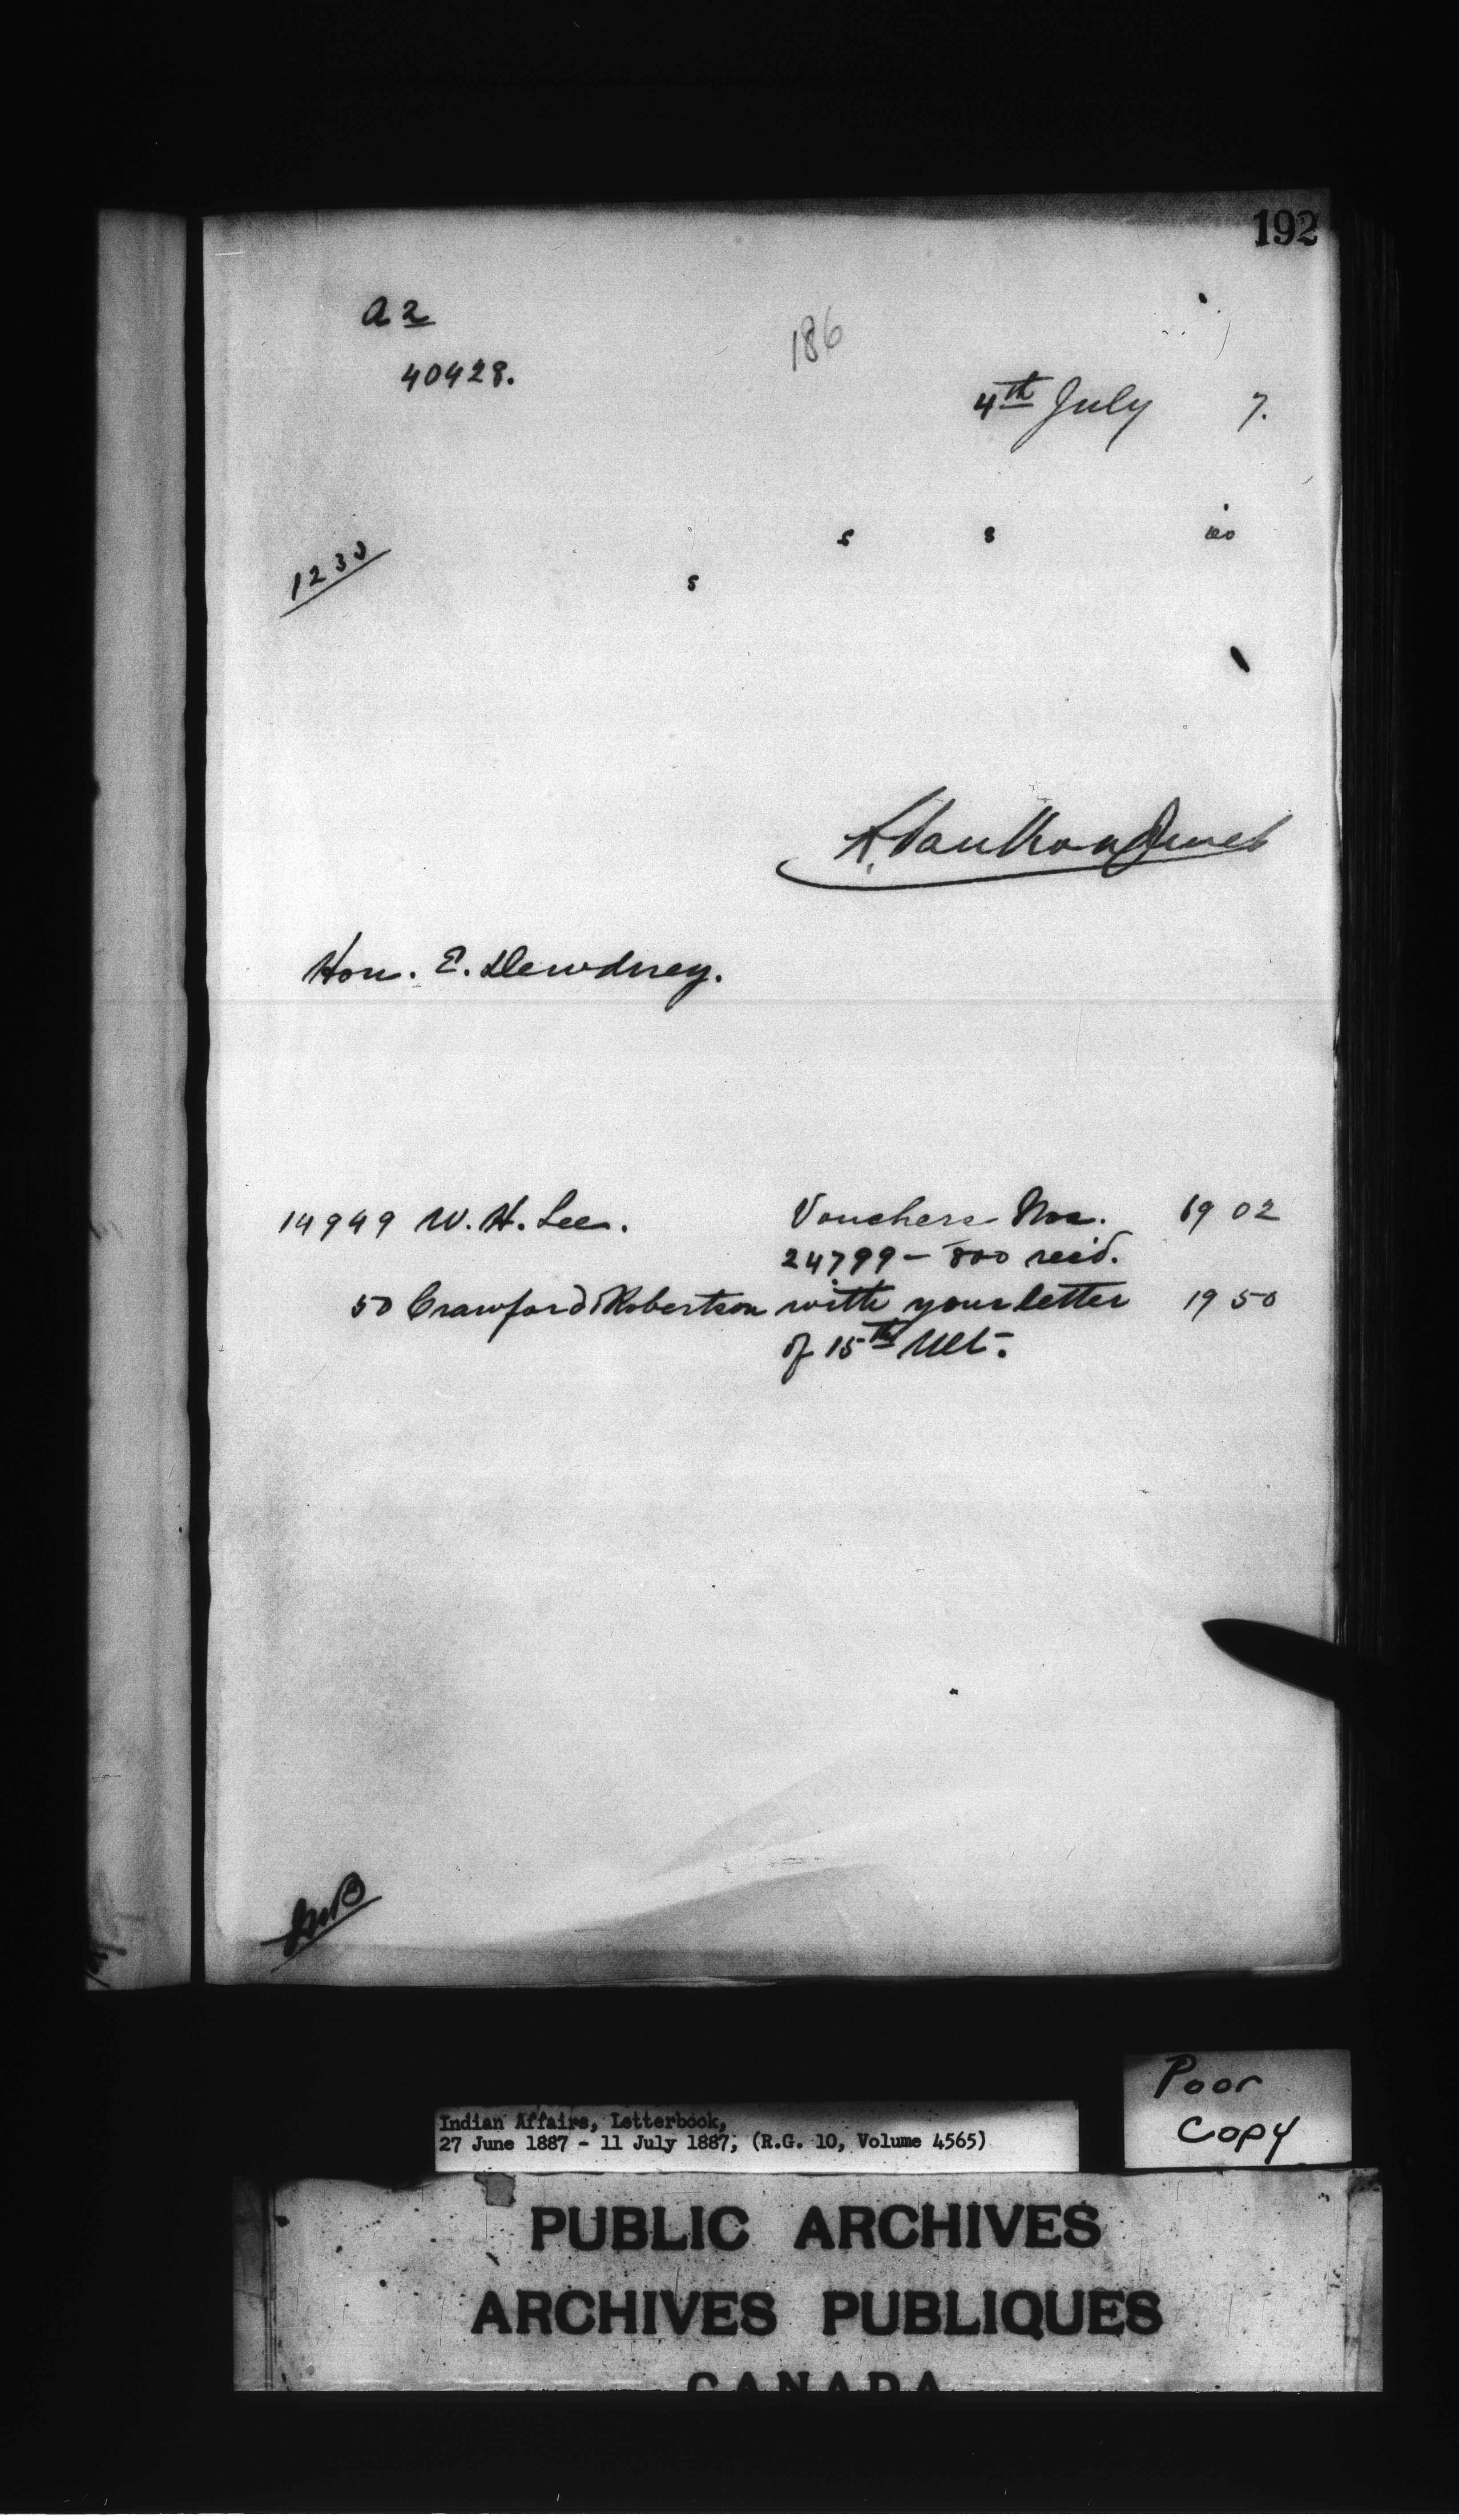 192
A 2
186
40428.
4th July 7.
s s
s
Hon. E. Dewdney.
14949 W. H. Lee. Vouchers Nos. 19 02
24799 - 800 recd.
50 Crawford Robertson with your letter 19 50
of 15th Ult.
Poor
Copy
Indian Affairs, Letterbook,
27 June 1887 - 11 July 1887, (R.G. 10, Volume 4565)
PUBLIC ARCHIVES
ARCHIVES PUBLIQUES
CANADA